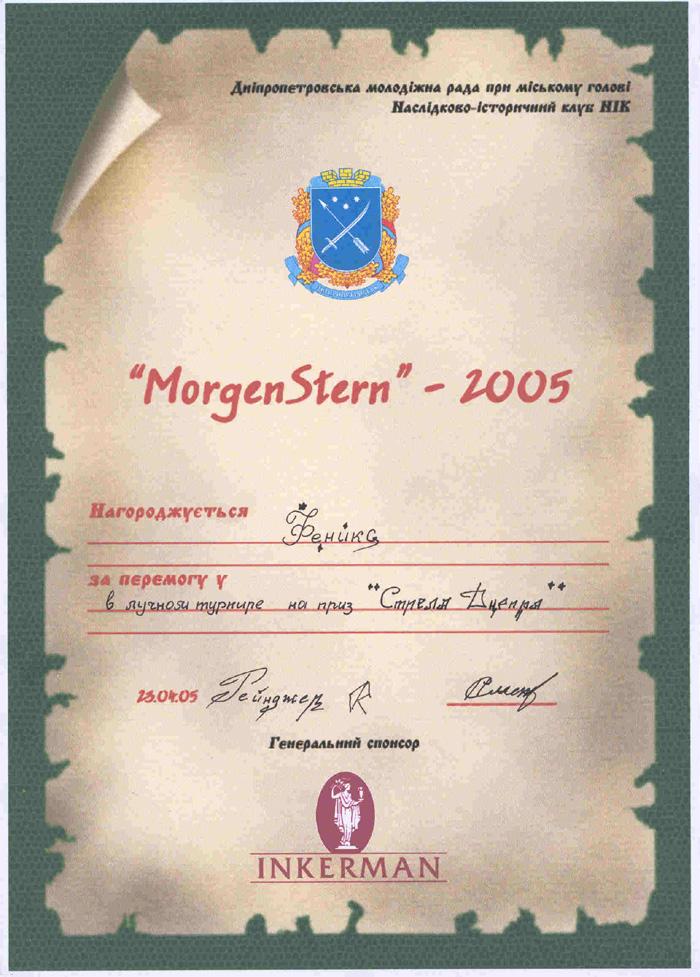 Дніпропетровська молодіжна рада при міському голові
Наслідково-історичний клуб НІК
“MorgenStern” - 2005
Нагороджується
Феникс
за перемогу у
в лучном турнире на приз "Стрела Днепра"
23.04.05 Рейнджер
Генеральний спонсор
INKERMAN